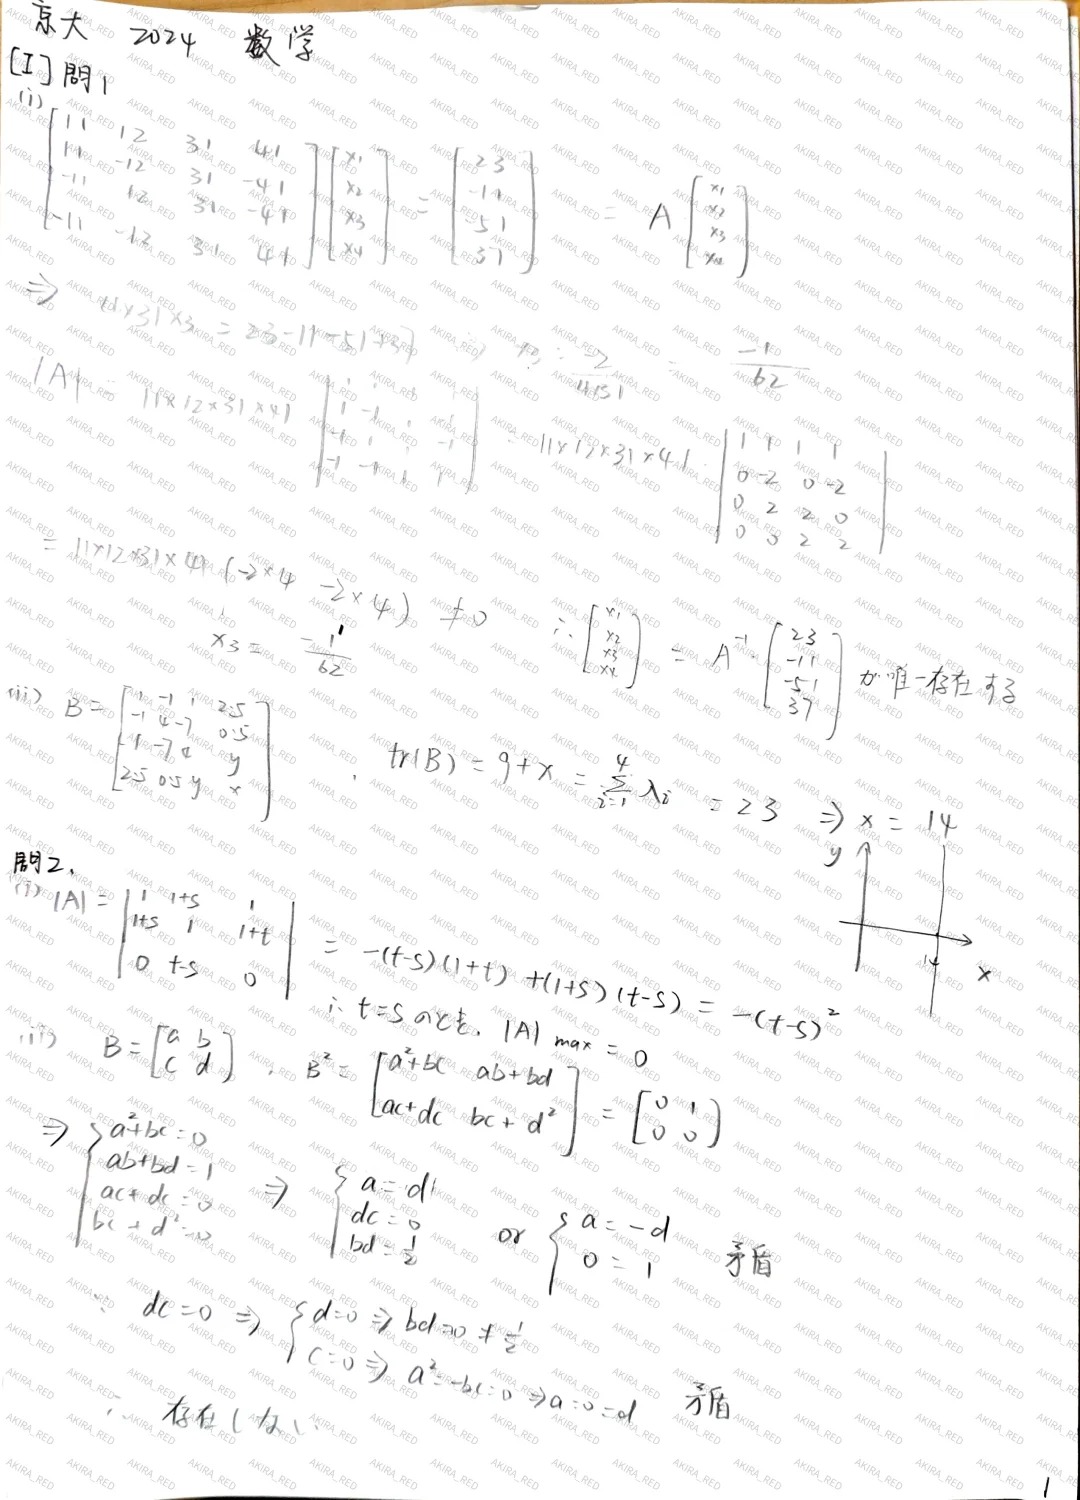 京大 2024 数学
[I] 問1
(i)
[11 12 31 41; 11 -12 31 -41; -11 12 31 -41; -11 -12 31 41] [x1; x2; x3; x4] = [23; -11; -51; 37] = A [x1; x2; x3; x4]
⇒ 4×31×3 = 23-11-51+37 ∴ x3 = -2/4·31 = -1/62
|A| = 11×12×31×41 |1 1 1 1; 1 -1 1 -1; -1 1 1 -1; -1 -1 1 1| = 11×12×31×41 · |1 1 1 1; 0 -2 0 -2; 0 2 2 0; 0 0 2 2|
= 11×12×31×41 (-2×4 -2×4) ≠ 0 ∴ [x1; x2; x3; x4] = A^-1 · [23; -11; -51; 37] が唯一存在する
x3 = -1/62
(ii) B = [1 -1 1 2.5; -1 4 -7 0.5; -1 -7 4 y; 2.5 0.5 y x] , tr(B) = 9+x = Σ_{i=1}^{4} λi = 23 ⇒ x = 14
y
14
x
問2.
(i) |A| = |1 1+s 1; 1+s 1 1+t; 0 t-s 0| = -(t-s)(1+t) +(1+s)(t-s) = -(t-s)^2
∴ t=s のとき, |A| max = 0
(ii) B = [a b; c d] , B^2 = [a^2+bc ab+bd; ac+dc bc+d^2] = [0 1; 0 0]
⇒ { a^2+bc=0; ab+bd=1; ac+dc=0; bc+d^2=0 ⇒ { a=d; dc=0; bd=1/2 or { a=-d; 0=1 矛盾
∵ dc=0 ⇒ { d=0 ⇒ bd=0 ≠ 1/2; c=0 ⇒ a^2=-bc=0 ⇒ a=0=d 矛盾
∴ 存在しない.
1
AKIRA_RED